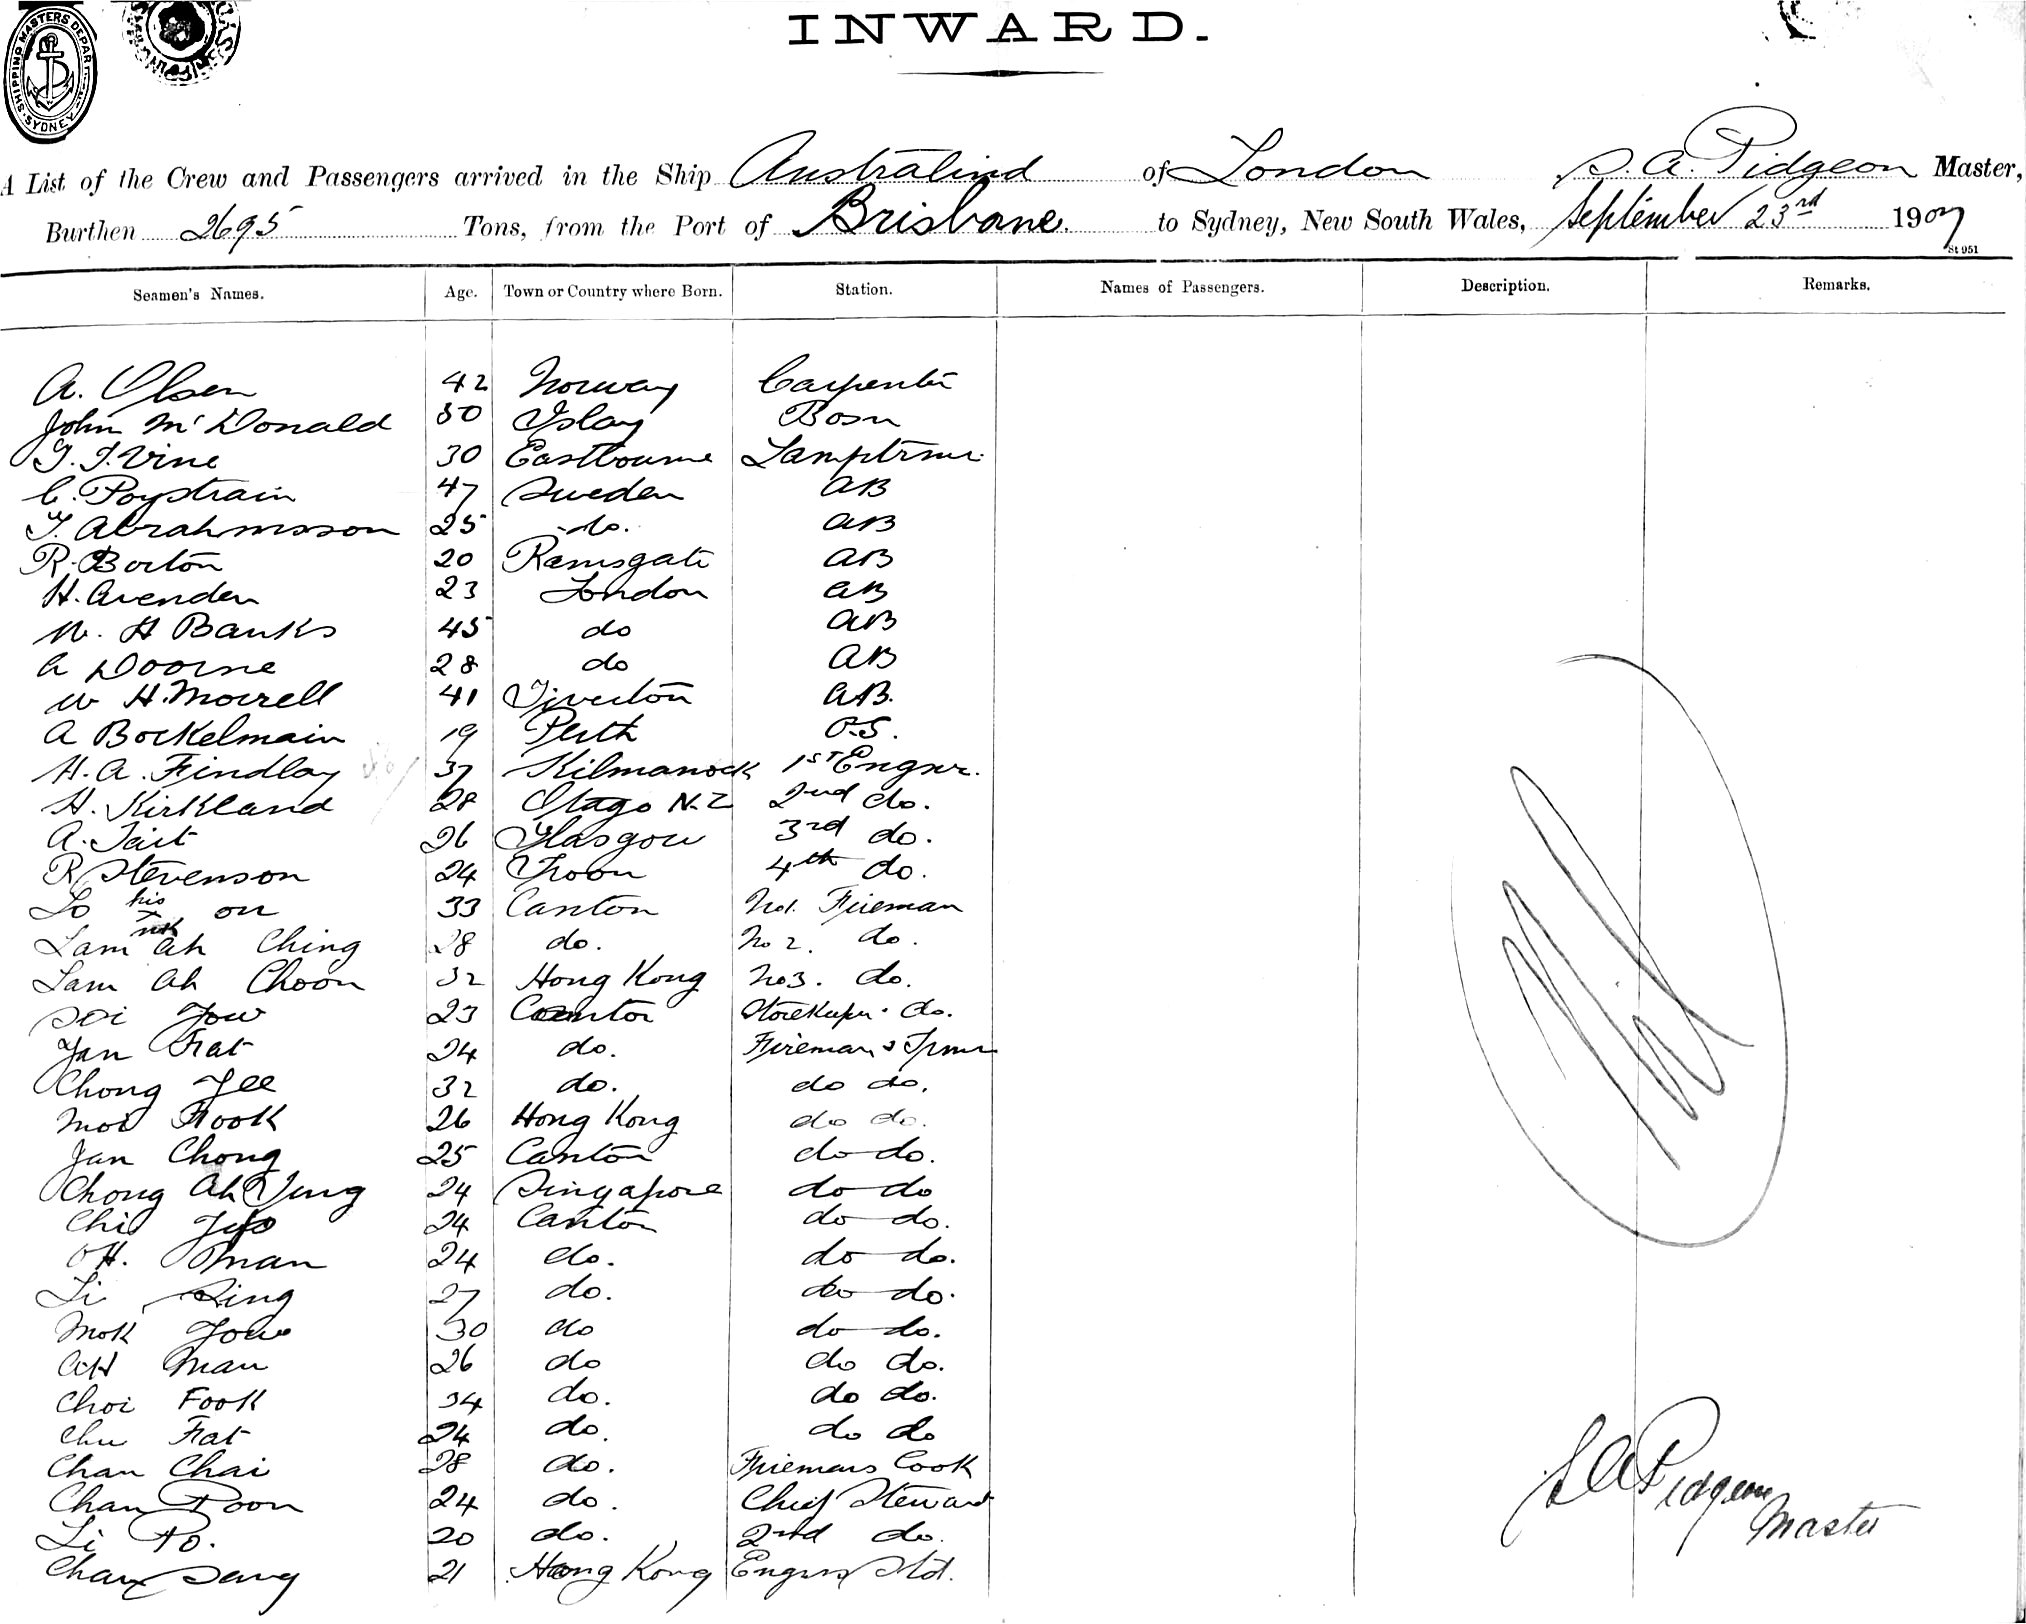 SHIPPING MASTERS DEPARTMENT SYDNEY
INWARD.
A List of the Crew and Passengers arrived in the Ship Australind of London S. A. Pidgeon Master,
Burthen 2695 Tons, from the Port of Brisbane. to Sydney, New South Wales, September 23rd 1907
St 951
Seamen's Names. Age. Town or Country where Born. Station. Names of Passengers. Description. Remarks.
A. Olsen 42 Norway Carpenter
John McDonald 30 Islay Bosn
G. T. Vine 30 Eastbourne Lamptrmr.
C. Poystrain 47 Sweden AB
T. Abrahmsson 25 do. AB
R. Borton 20 Ramsgate AB
H. Avenden 23 London AB
W. H Banks 45 do AB
A Doorne 28 do AB
W H. Morrell 41 Tiverton AB.
A Bockelmain 19 Perth O.S.
H. A. Findlay 37 Kilmanock 1st Engnr.
H. Kirkland 28 Otago N.Z 2nd do.
A. Tait 26 Glasgow 3rd do.
R Stevenson 24 Troon 4th do.
Lo his x mk on 33 Canton No1. Fireman
Lam Ah Ching 28 do. No 2. do.
Lam Ah Choon 32 Hong Kong No3. do.
Soi Yow 23 Canton Storekeeper do.
Yan Fat 24 do. Fireman & Trmr
Chong Yee 32 do. do do.
Moi Fook 26 Hong Kong do do.
Jan Chong 25 Canton do do.
Chong Ah Ying 24 Singapore do do
Chi 24 Canton do do.
Oh. Man 24 do. do do.
Li Sing 27 do. do do.
Mok Yow 30 do do do.
Ah Man 26 do do do.
Choi Fook 34 do. do do.
Chu Fat 24 do. do do
Chan Chai 28 do. Firemans Cook
Chan Poon 24 do. Chief Steward
Li Po. 20 do. 2nd do.
Chan Sang 21 Hong Kong Engnrs Std.
Nil
S A Pidgeon
Master